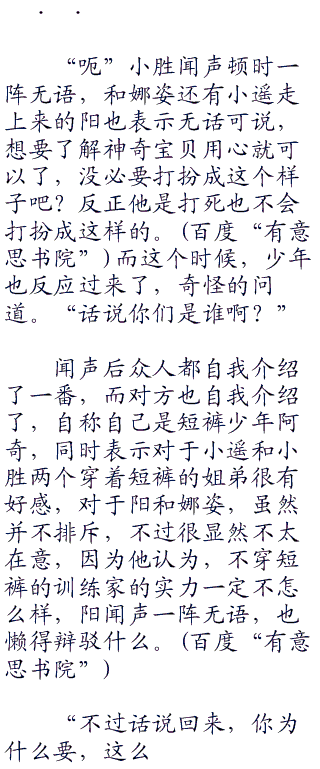 · ·
“呃”小胜闻声顿时一
阵无语，和娜姿还有小遥走
上来的阳也表示无话可说，
想要了解神奇宝贝用心就可
以了，没必要打扮成这个样
子吧？反正他是打死也不会
打扮成这样的。(百度“有意
思书院”)而这个时候，少年
也反应过来了，奇怪的问
道。“话说你们是谁啊？”
闻声后众人都自我介绍
了一番，而对方也自我介绍
了，自称自己是短裤少年阿
奇，同时表示对于小遥和小
胜两个穿着短裤的姐弟很有
好感，对于阳和娜姿，虽然
并不排斥，不过很显然不太
在意，因为他认为，不穿短
裤的训练家的实力一定不怎
么样，阳闻声一阵无语，也
懒得辩驳什么。(百度“有意
思书院”)
“不过话说回来，你为
什么要，这么